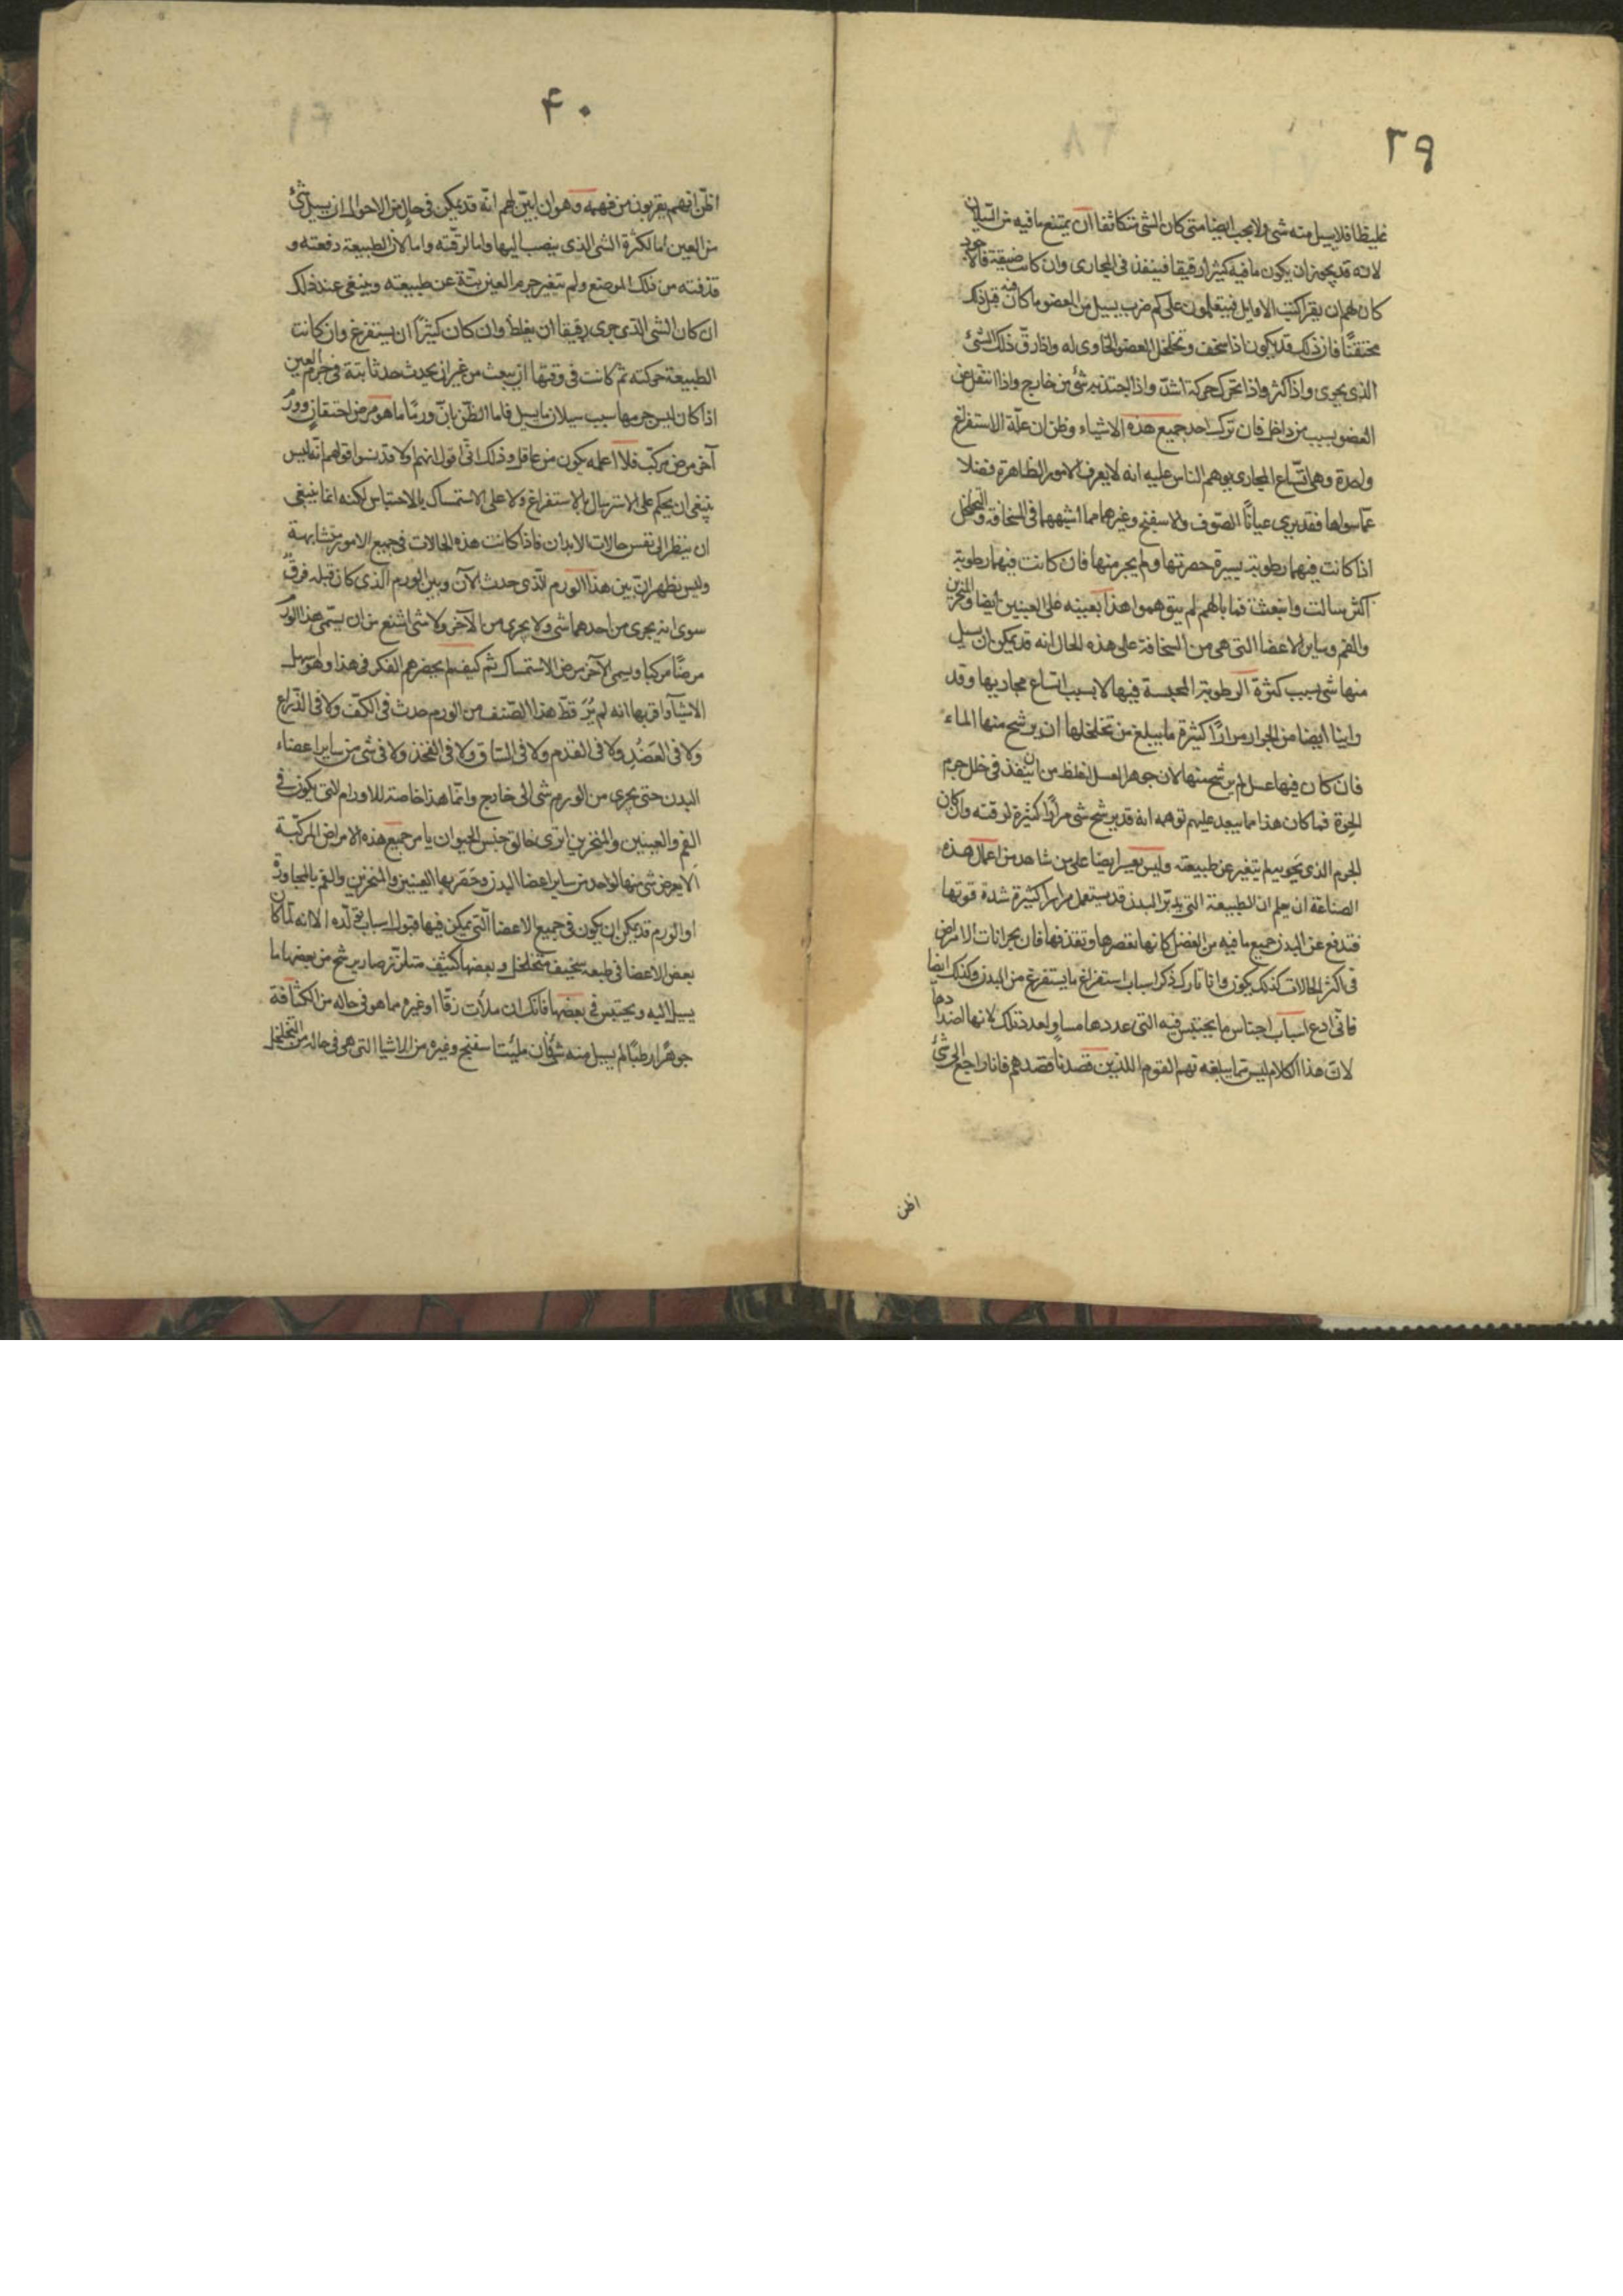 ٣٩
غليظا فلا يسيل منه شى ولا يجب ايضا متى كان الشى متكاثفا ان يمتنع ما فيه من السيلان
لانه قد يجوز ان يكون ما فيه كثيرا رقيقا فينفذ فى المجارى وان كانت ضيقة فالاجود
كان لهم ان يقرا كتب الاوايل فيتعلمون على كم ضرب يسيل من العضو ما كان فيه قبل ذلك
محتقنًا فان ذلك قد يكون اذا سخف وتخلخل العضو الحاوى له واذا رقّ ذلك الشئ
الذى يحوى واذا كثر واذا تحرك حركة اشدّ واذا اجتذبه شئ من خارج واذا انتقل عن
العضو بسبب من داخل فان ترك احد جميع هذه الاشياء وظن ان علّة الاستفراغ
واحدة وهى اتّساع المجارى يوهم الناس عليه انه لا يعرف الامور الظاهرة فضلا
عمّا سواها فقد يرى عيانًا الصّوف والاسفنج وغيرهما مما اشبههما فى السخافة والتخلخل
اذا كانت فيهما رطوبة يسيرة حصرتها ولم يجر منها فان كانت فيهما رطوبة
اكثر سالت وانبعثت فما بالهم لم يتوهموا هذا بعينه على العينين ايضا والمنخرين
والفم وساير الاعضا التى هى من السخافة على هذه الحال انه قد يمكن ان يسيل
منها شى بسبب كثرة الرطوبة المحتبسة فيها لا بسبب اتساع مجاريها وقد
راينا ايضا من الجرار مرارًا كثيرة ما يبلغ من تخلخلها ان يرشح منها الماء
فان كان فيها عسل لم يرشح منها لان جوهر العسل اغلظ من ان ينفذ فى خلل جرم
الجرة فما كان هذا مما يبعد عليهم توهمه انه قد يرشح شى مرارًا كثيرة لرقته وان كان
الجرم الذى يحويه لم يتغير عن طبيعته وليس يعسر ايضا على من شاهد من اعمال هذه
الصناعة ان يعلم ان الطبيعة التى يدبّر البدن قد يستعمل مرارا كثيرة شدة قوتها
فتدفع عن البدن جميع ما فيه من الفضل كانها تعصرها وتقذفها فان بحرانات الامراض
فى اكثر الحالات كذلك يكون وانا تارك ذكر اسباب استفراغ ما يستفرغ من البدن وكذلك ايضا
فانّى ادع اسباب اجناس ما يحتبس فيه التى عددها مساو لعدد تلك لانها اضدادها
لانّ هذا الكلام ليس مما يبلغه فهم القوم الذين قصدنا قصدهم فانا راجع الى شئ
اظن
٤٠
اظنّ انهم يقربون من فهمه وهو ان ابيّن لهم انّه قد يمكن فى حال من الاحوال ان يسيل شئ
من العين اما لكثرة الشى الذى ينصب اليها واما لرقّته واما لان الطبيعة دفعته و
قذفته من ذلك الموضع ولم يتغير جرم العين بتّة عن طبيعته وينبغى عند ذلك
ان كان الشى الذى جرى رقيقا ان يغلظ وان كان كثيرًا ان يستفرغ وان كانت
الطبيعة حركته ثم كانت فى وقتها ان يبعث من غير ان يحدث حدثا بتة فى جرم العين
اذا كان ليس جرمها سبب سيلان ما يسيل فاما الظّن بانّ ورمًا ما هو مرض احتقان وورم
آخر مرض مركّب فلا اعلمه يكون من عاقل وذلك انّى اقول انهم اولا قد نسوا قولهم انه ليس
ينبغى ان يحكم على الاسترسال بالاستفراغ ولا على الاستمساك بالاحتباس لكنه انما ينبغى
ان ينظر الى نفس حالات الابدان فاذا كانت هذه الحالات فى جميع الامور متشابهة
وليس يظهر انّ بين هذا الورم الّذى حدث الآن وبين الورم الذى كان قبله فرقٌ
سوى انه يجرى من احدهما شى ولا يجرى من الآخر ولا شى اشنع من ان يسمّى هذا الورم
مرضًا مركبا ويسمى الآخر مرض الاستمساك ثم كيف لم يحضرهم الفكر فى هذا وهو اسهل
الاشيآ واقربها انه لم يُرَ قطّ هذا الصّنف من الورم حدث فى الكتف ولا فى الذّراع
ولا فى العَضُد ولا فى القدم ولا فى الساق ولا فى الفخذ ولا فى شى من ساير اعضاء
البدن حتى يجرى من الورم شى الى خارج وانّما هذا خاصة للاورام التى يكون فى
الفم والعينين والمنخرين اترى خالق جنس الحيوان يامر جميع هذه الامراض المركّبة
الا يعرض شى منها لواحد من ساير اعضا البدن وحَصَر بها العينين والمنخرين والفم بالمجاورة
او الورم قد يمكن ان يكون فى جميع الاعضا الّتى يمكن فيها قبول اسباب تولّده الا انه لمّا كان
بعض الاعضا فى طبعه سخيف متخلخل وبعضها كثيف متلزّز صار يرشح من بعضها ما
يسيل اليه ويحتبس فى بعضها فانك ان ملأت زقّا او غيره مما هو فى حاله من الكثافة
جوهرًا رطبًا لم يسيل منه شئ فان ملئت اسفنج وغيره من الاشيا التى هى فى حاله من التخلخل